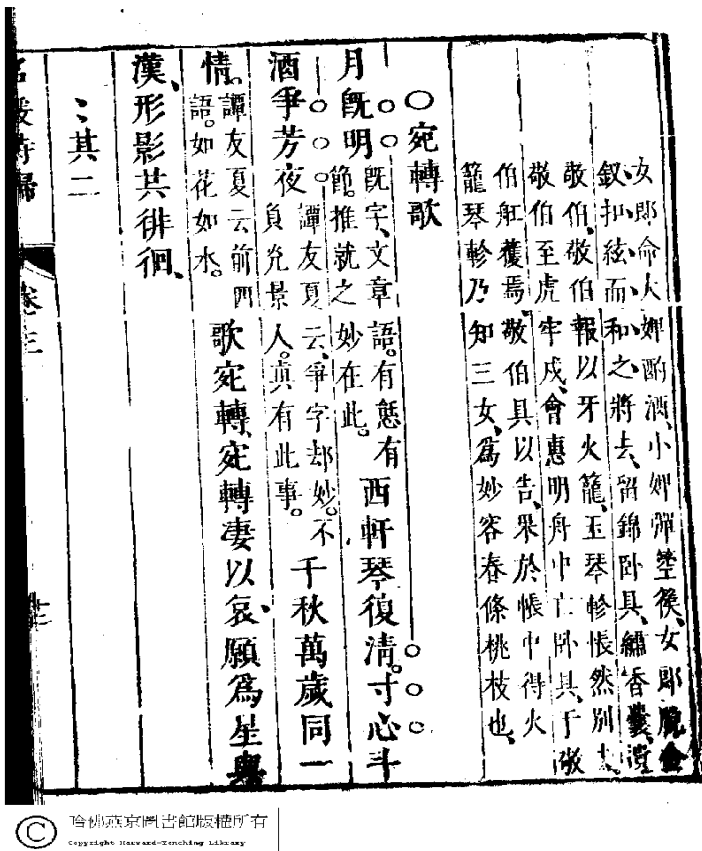 女郎命大婢酌酒、小婢彈箜篌、女郎脫金
釵扣絃而和之、將去、留錦臥具、繡香囊、遺
敬伯、敬伯報以牙火籠、玉琴軫悵然別去、
敬伯至虎牢戍、會惠明舟中亡臥具、于敬
伯舡獲焉、敬伯具以告、果於帳中得火
籠琴軫乃知三女、爲妙容春條桃枝也、
〇宛轉歌
月旣明旣字、文章語。有態有節。推就之妙在此。西軒琴復清。寸心斗
酒爭芳夜譚友夏云、爭字却妙。不負光景人。眞有此事。千秋萬歲同一
情。譚友夏云前四語。如花如水。歌宛轉、宛轉淒以哀、願爲星與
漢、形影共徘徊、
其二
名媛詩歸 卷三
哈佛燕京圖書館版權所有
Copyright Harvard-Yenching Library